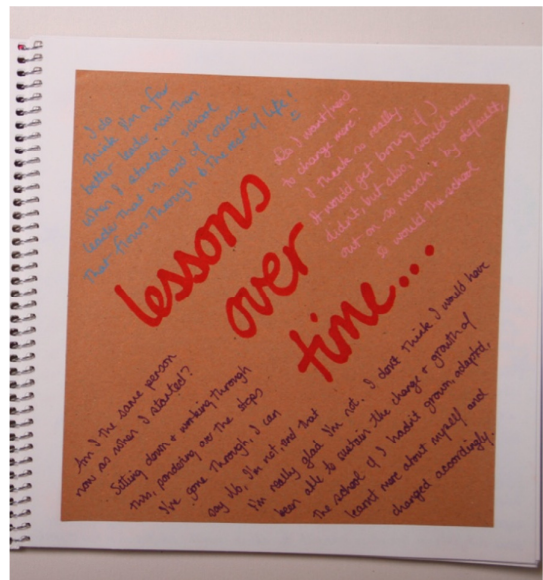 I do
think I'm a far
better leader now than
when I started - school
leader that is, out of course
that flows through to the rest of life!
Do I want/need
to change more?
I think so really.
It would get boring if I
didn't, but also, I would miss
out on so much + by default,
so would the school
lessons
over
time...
Am I the same person
now as when I started?
Sitting down + working through
this, pondering over the steps
I've gone through, I can
say No, I'm not, and that
I'm really glad I'm not. I don't think I would have
been able to sustain the change + growth of
the school if I hadn't grown, adapted,
learnt more about myself and
changed accordingly.